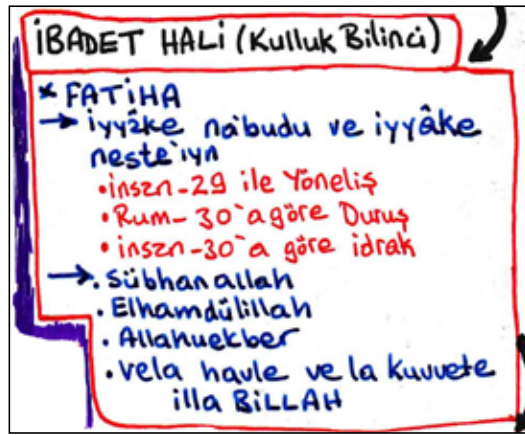 İBADET HALİ (Kulluk Bilinci)
* FATİHA
→ İyyâke na'budu ve iyyâke
neste'ıyn
• insan-29 ile Yöneliş
• Rum-30'a göre Duruş
• insan-30'a göre idrak
→ • Sübhanallah
• Elhamdülillah
• Allahuekber
• vela havle ve la kuvvete
illa BİLLAH